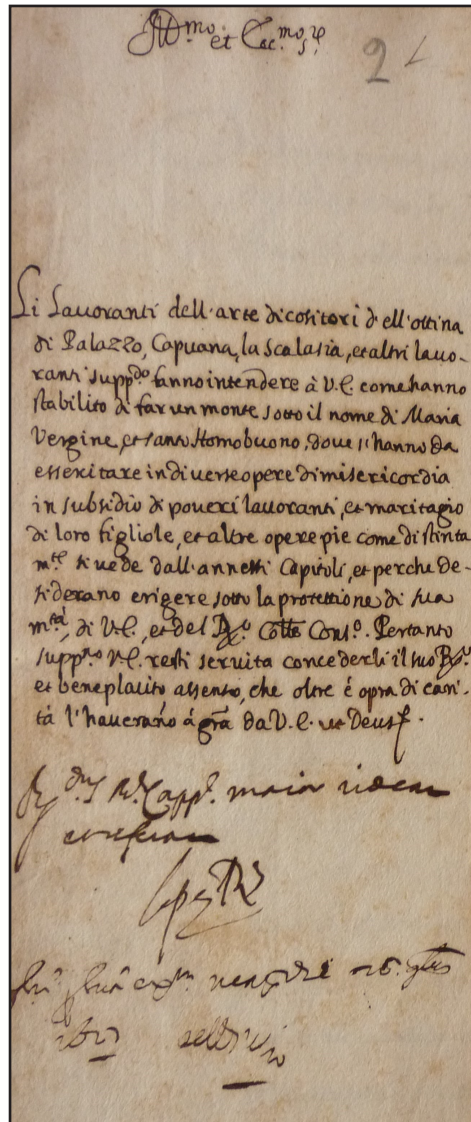 Ill.mo et Ecc.mo S.re
2
Li Lauoranti dell'arte di cositori d'ell'ottina
di Palazzo, Capuana, la Scalasia, et altri lauo-
ranti supp.do fanno intendere à V.E. come hanno
stabilito di far un monte sotto il nome di Maria
Vergine, et santo Homobuono, doue si hanno da
essercitare in diuerse opere di misericordia
in subsidio di poueri lauoranti, et maritagio
di loro figliole, et altre opere pie come distinta
m.te si uede dall'annessi Capitoli, et perche de-
siderano erigere sotto la protettione di sua
m.tà, di V.E., et del R.o Coll.e Cons.o. Pertanto
supp.no V.E. resti seruita concederli il suo R.o
et beneplacito assenso, che oltre é opra di cari-
tà l'hauerano á gra da V.E. ut Deus.
R.dus Capp. maior uideat
et referat